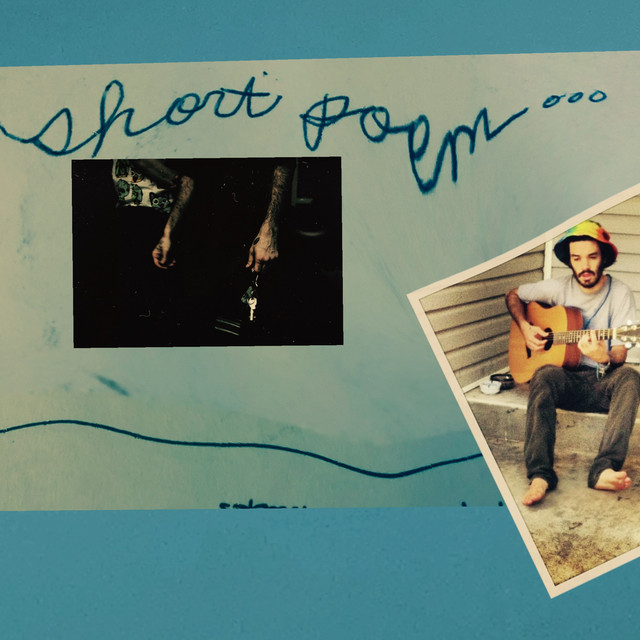 short poem...